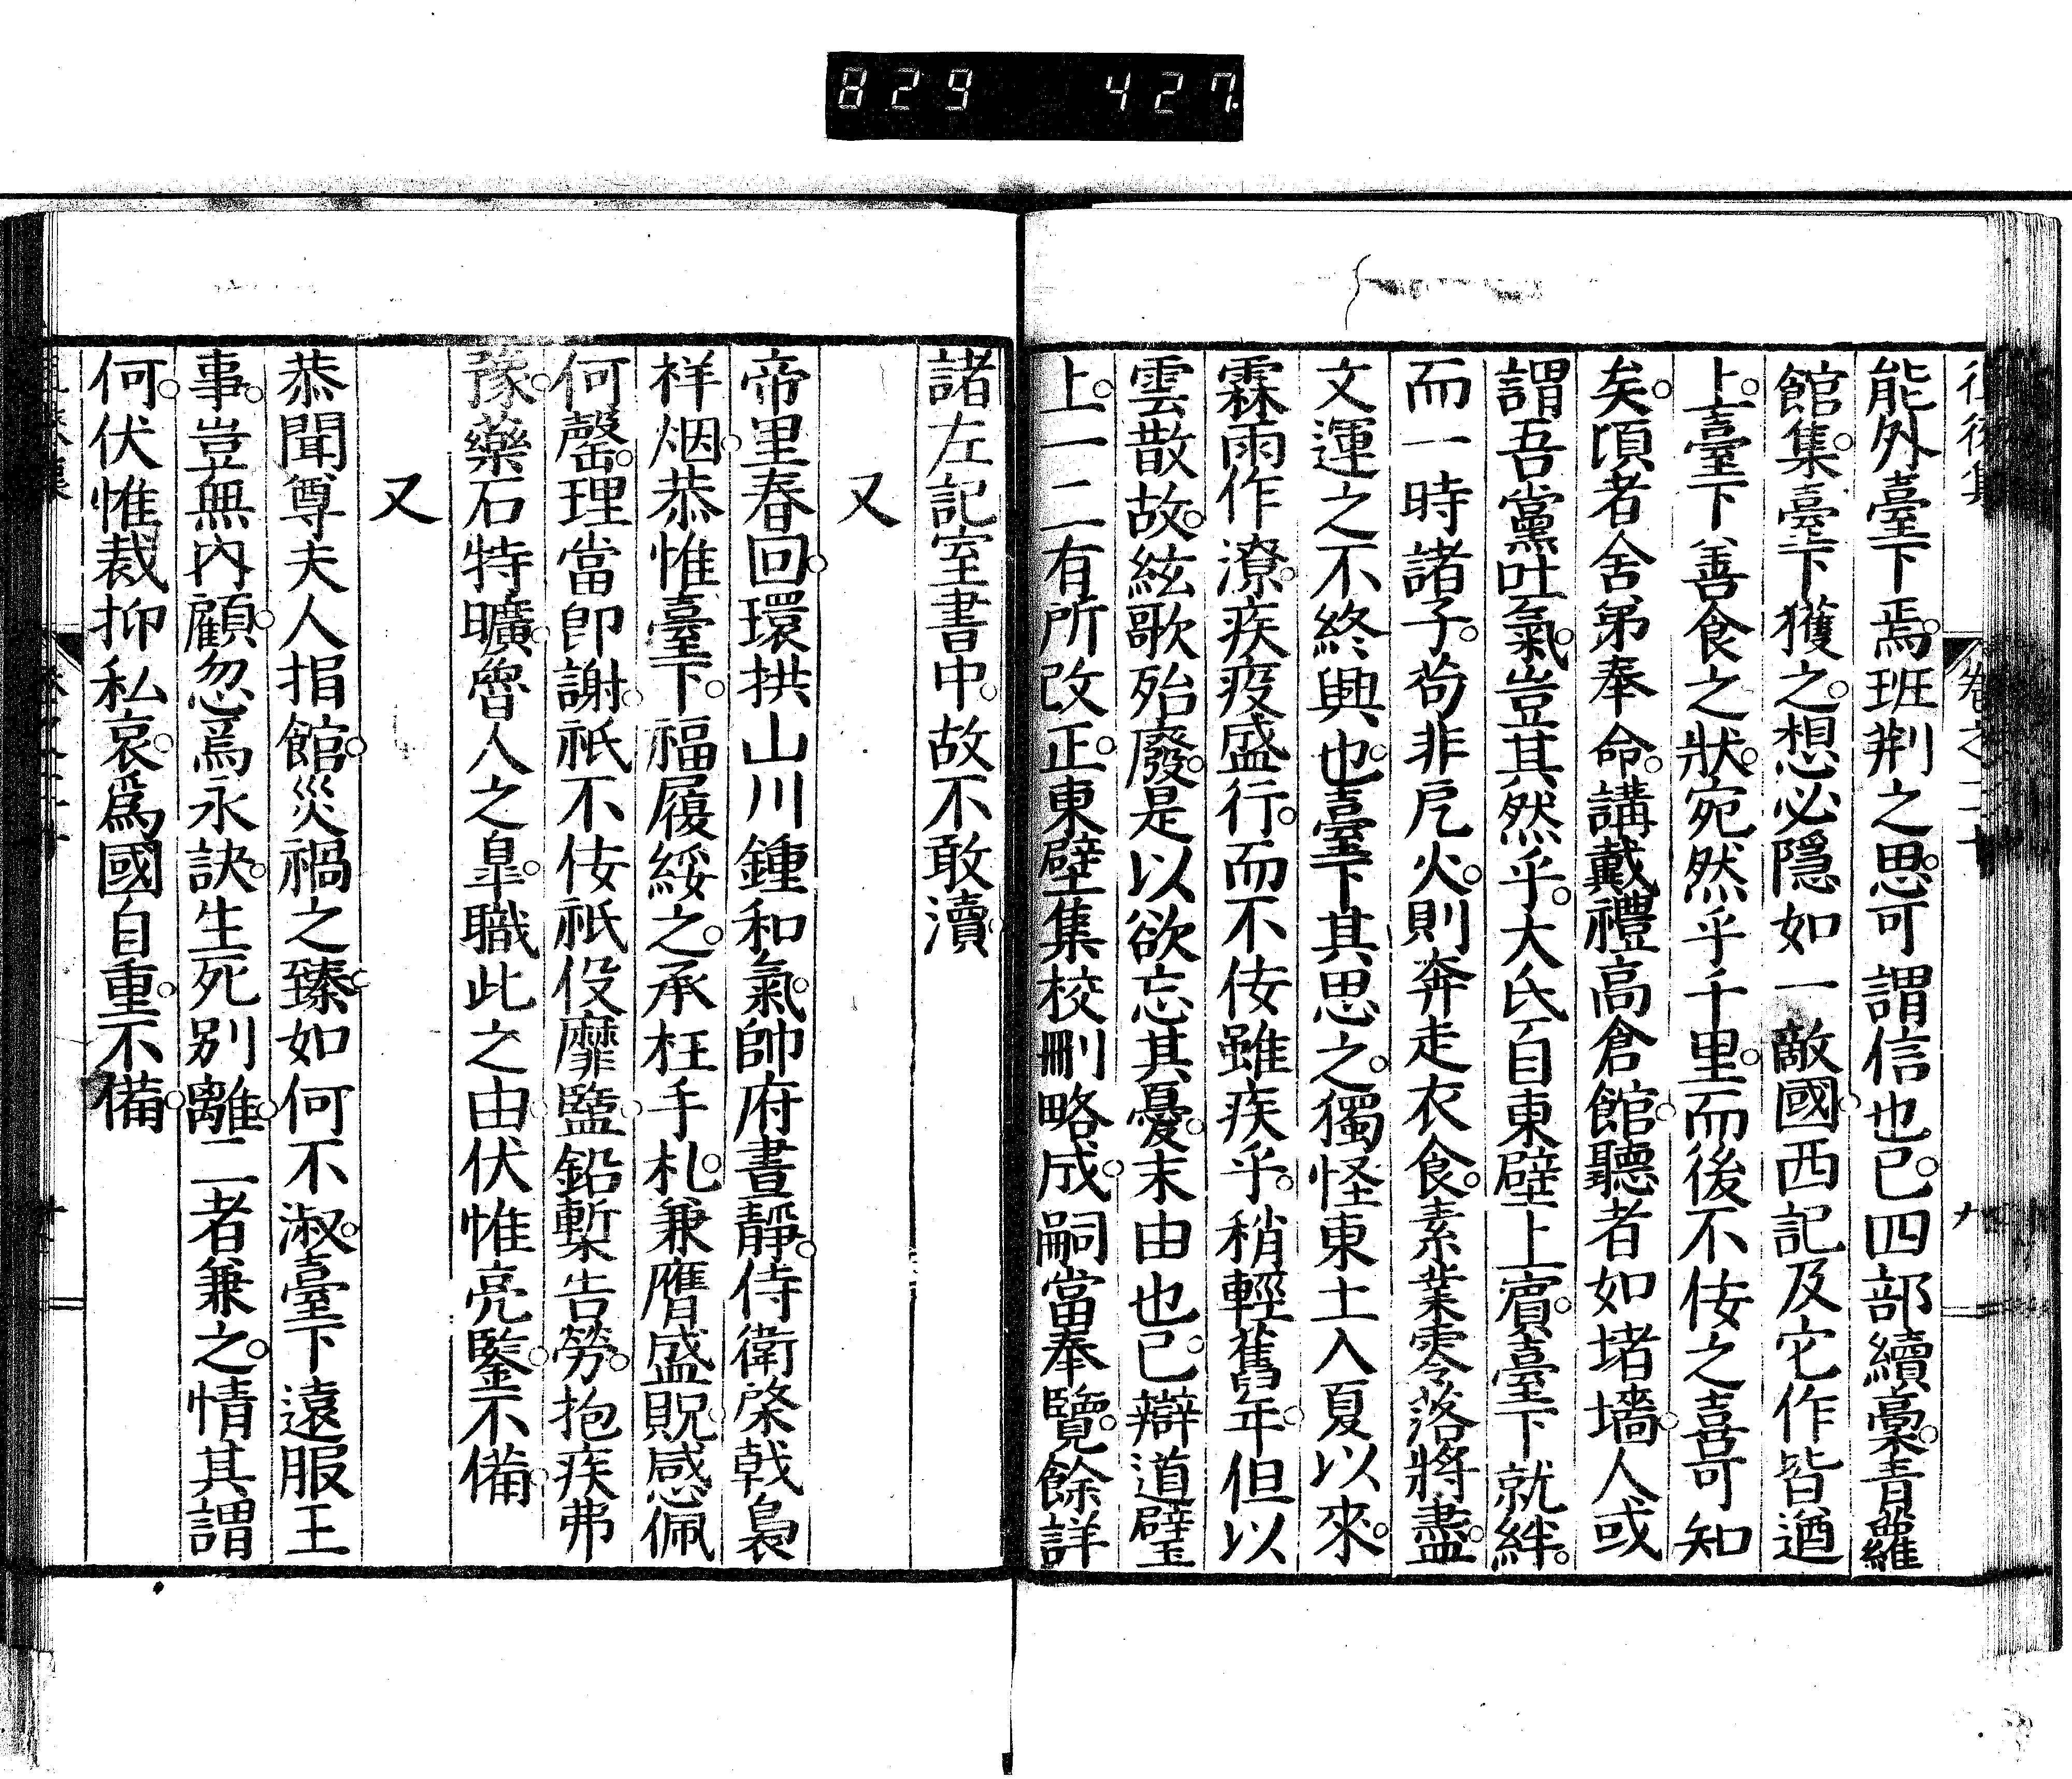 829 427
能外臺下焉班荆之思可謂信也已四部續藁青蘿
館集臺下獲之想必隱如一敵國西記及它作皆遒
上臺下善食之狀宛然乎千里而後不佞之喜可知
矣頃者舍弟奉命講戴禮高倉館聽者如堵墻人或
謂吾黨吐氣豈其然乎大氐自東壁上賓臺下就絆
而一時諸子苟非卮火則奔走衣食素業零落將盡
文運之不終興也臺下其思之獨怪東土入夏以來
霖雨作潦疾疫盛行而不佞雖疾乎稍輕舊年但以
雲散故絃歌殆廢是以欲忘其憂末由也已辯道璧
上一二有所改正東壁集校刪略成嗣當奉覽餘詳
諸左記室書中故不敢瀆
又
帝里春回環拱山川鍾和氣帥府晝靜侍衛棨戟裊
祥烟恭惟臺下福履綏之承枉手札兼膺盛貺感佩
何罄理當卽謝祇不佞祇役靡盬鉛槧告勞抱疾弗
豫藥石特曠魯人之皐職此之由伏惟亮鑒不備
又
恭聞尊夫人捐館災禍之臻如何不淑臺下遠服王
事豈無內顧忽焉永訣生死別離二者兼之情其謂
何伏惟裁抑私哀爲國自重不備